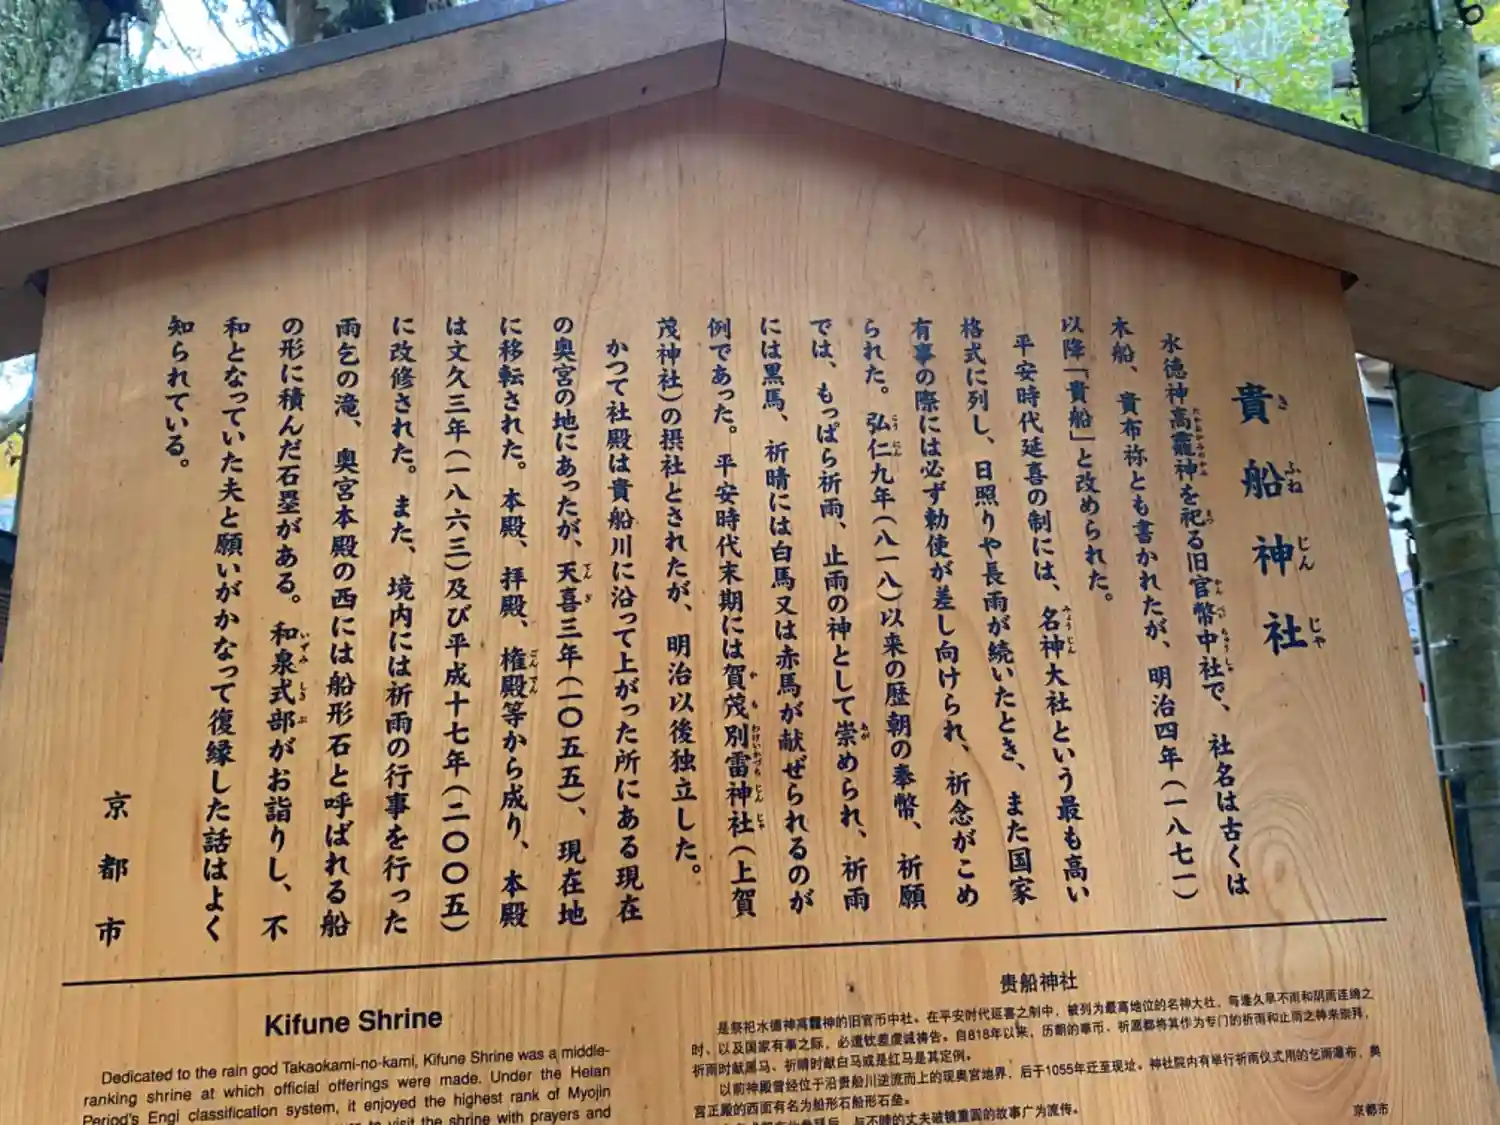 貴船神社
きふねじんじゃ
水徳神高龗神を祀る旧官幣中社で、社名は古くは
木船、貴布祢とも書かれたが、明治四年(一八七一)
以降「貴船」と改められた。
平安時代延喜の制には、名神大社という最も高い
格式に列し、日照りや長雨が続いたとき、また国家
有事の際には必ず勅使が差し向けられ、祈念がこめ
られた。弘仁九年(八一八)以来の歴朝の奉幣、祈願
では、もっぱら祈雨、止雨の神として崇められ、祈雨
には黒馬、祈晴には白馬又は赤馬が献ぜられるのが
例であった。平安時代末期には賀茂別雷神社(上賀
茂神社)の摂社とされたが、明治以後独立した。
かつて社殿は貴船川に沿って上がった所にある現在
の奥宮の地にあったが、天喜三年(一〇五五)、現在地
に移転された。本殿、拝殿、権殿等から成り、本殿
は文久三年(一八六三)及び平成十七年(二〇〇五)
に改修された。また、境内には祈雨の行事を行った
雨乞の滝、奥宮本殿の西には船形石と呼ばれる船
の形に積んだ石塁がある。和泉式部がお詣りし、不
和となっていた夫と願いがかなって復縁した話はよく
知られている。
京都市
Kifune Shrine
Dedicated to the rain god Takaokami-no-kami, Kifune Shrine was a middle-
ranking shrine at which official offerings were made. Under the Heian
Period's Engi classification system, it enjoyed the highest rank of Myojin
to visit the shrine with prayers and
贵船神社
是祭祀水德神高龗神的旧官币中社。在平安时代延喜之制中，被列为最高地位的名神大社，每逢久旱不雨和阴雨连绵之
时，以及国家有事之际，必遣钦差虔诚祷告。自818年以来，历朝的奉币，祈愿都将其作为专门的祈雨和止雨之神来崇拜，
祈雨时献黑马、祈晴时献白马或是红马是其定例。
以前神殿曾经位于沿贵船川逆流而上的现奥宫地界，后于1055年迁至现址。神社院内有举行祈雨仪式用的乞雨瀑布，奥
宫正殿的西面有名为船形石船形石垒。
与不睦的丈夫破镜重圆的故事广为流传。
京都市